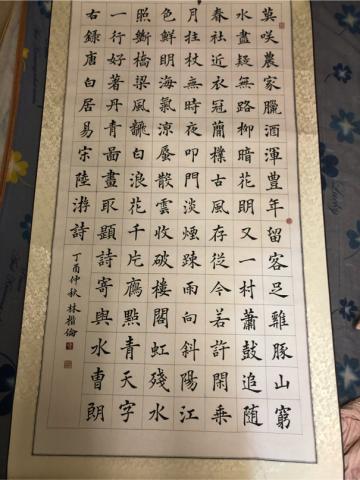 莫咲農家臘酒渾豊年留客足雞豚山窮
水盡疑無路柳暗花明又一村蕭鼓追隨
春社近衣冠簡樸古風存從今若許閑乗
月拄杖無時夜叩門淡煙踈雨向斜陽江
色鮮明海氣涼蜃散雲收破樓閣虹殘水
照斷橋梁風翻白浪花千片鴈點青天字
一行好著丹青啚畫取題詩寄與水曹朗
右錄唐白居易宋陸游詩
丁酉仲秋 林楷倫